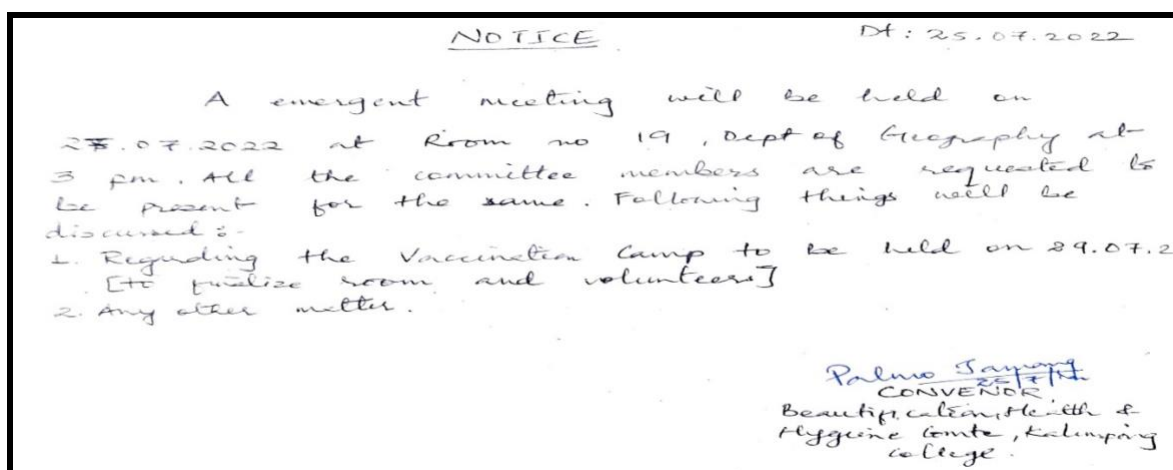 NOTICE Dt: 25.07.2022
A emergent meeting will be held on
.07.2022 at Room no 19, Dept of Geography at
3 pm. All the committee members are requested to
be present for the same. Following things will be
discussed :-
1. Reguding the Vaccination Camp to be held on 29.07.2
[to finalize room and volunteers]
2. Any other matter.
Palmo Tamang
25/7/22
CONVENOR,
Beautification, Health &
Hygeine Comte, Kalimpong
College.